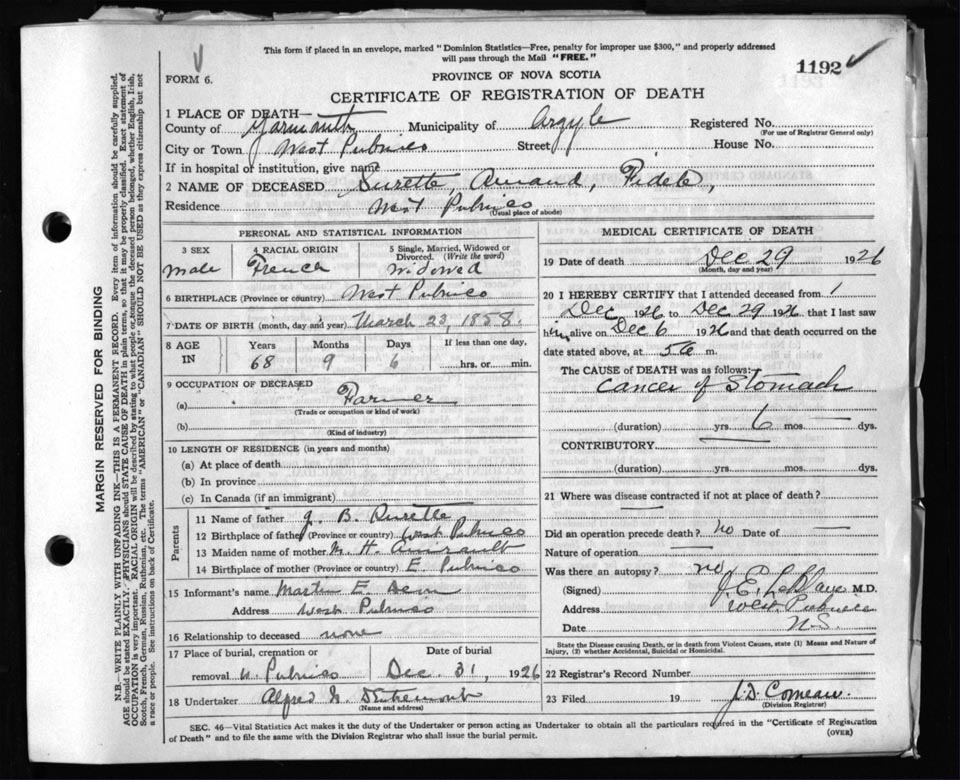 This form if placed in an envelope, marked "Dominion Statistics—Free, penalty for improper use $300," and properly addressed
will pass through the Mail "FREE."
1192
FORM 6.
PROVINCE OF NOVA SCOTIA
CERTIFICATE OF REGISTRATION OF DEATH
1 PLACE OF DEATH—
County of Yarmouth Municipality of Argyle Registered No.
(For use of Registrar General only)
City or Town West Pubnico Street House No.
If in hospital or institution, give name
2 NAME OF DECEASED Surette, Amand, Fidele,
Residence West Pubnico
(Usual place of abode)
PERSONAL AND STATISTICAL INFORMATION
3 SEX 4 RACIAL ORIGIN 5 Single, Married, Widowed or Divorced. (Write the word)
Male French Widowed
6 BIRTHPLACE (Province or country) West Pubnico
7 DATE OF BIRTH (month, day and year) March 23, 1858.
8 AGE IN Years Months Days If less than one day,
68 9 6 hrs. or min.
9 OCCUPATION OF DECEASED
(a) Farmer
(Trade or occupation or kind of work)
(b)
(Kind of industry)
10 LENGTH OF RESIDENCE (in years and months)
(a) At place of death
(b) In province
(c) In Canada (if an immigrant)
Parents
11 Name of father J. B. Surette
12 Birthplace of father (Province or country) West Pubnico
13 Maiden name of mother M. H. Amirault
14 Birthplace of mother (Province or country) E. Pubnico
15 Informant's name Martin E.
Address West Pubnico
16 Relationship to deceased none
17 Place of burial, cremation or Date of burial
removal W. Pubnico Dec. 31, 1926
18 Undertaker Alfred
(Name and address)
MEDICAL CERTIFICATE OF DEATH
19 Date of death Dec 29 1926
(Month, day and year)
20 I HEREBY CERTIFY that I attended deceased from 1
Dec 1926 to Dec 29 1926 that I last saw
him alive on Dec 6 1926 and that death occurred on the
date stated above, at m.
The CAUSE OF DEATH was as follows:
Cancer of Stomach
(duration) yrs. 6 mos. — dys.
CONTRIBUTORY
(duration) yrs. mos. dys.
21 Where was disease contracted if not at place of death?
Did an operation precede death? no Date of —
Nature of operation —
Was there an autopsy? no
(Signed) J. E. LeBlanc M.D.
Address West Pubnico
Date N.S.
State the Disease causing Death, or in death from Violent Causes, state (1) Means and Nature of
Injury, (2) whether Accidental, Suicidal or Homicidal.
22 Registrar's Record Number
23 Filed 19 J. D. Comeau.
(Division Registrar)
SEC. 46—Vital Statistics Act makes it the duty of the Undertaker or person acting as Undertaker to obtain all the particulars required in the "Certificate of Registration
of Death" and to file the same with the Division Registrar who shall issue the burial permit.
(OVER)
MARGIN RESERVED FOR BINDING
N.B.—WRITE PLAINLY WITH UNFADING INK—THIS IS A PERMANENT RECORD. Every item of information should be carefully supplied.
AGE should be stated EXACTLY. PHYSICIANS should STATE CAUSE OF DEATH in plain terms, so that it may be properly classified. Exact statement of
OCCUPATION is very important. RACIAL ORIGIN will be described by stating to what people or tongue the deceased person belonged, whether English, Irish,
Scotch, French, German, Russian, Ruthenian, etc. The terms "AMERICAN" or "CANADIAN" SHOULD NOT BE USED as they express citizenship but not
a race or people. See instructions on back of Certificate.